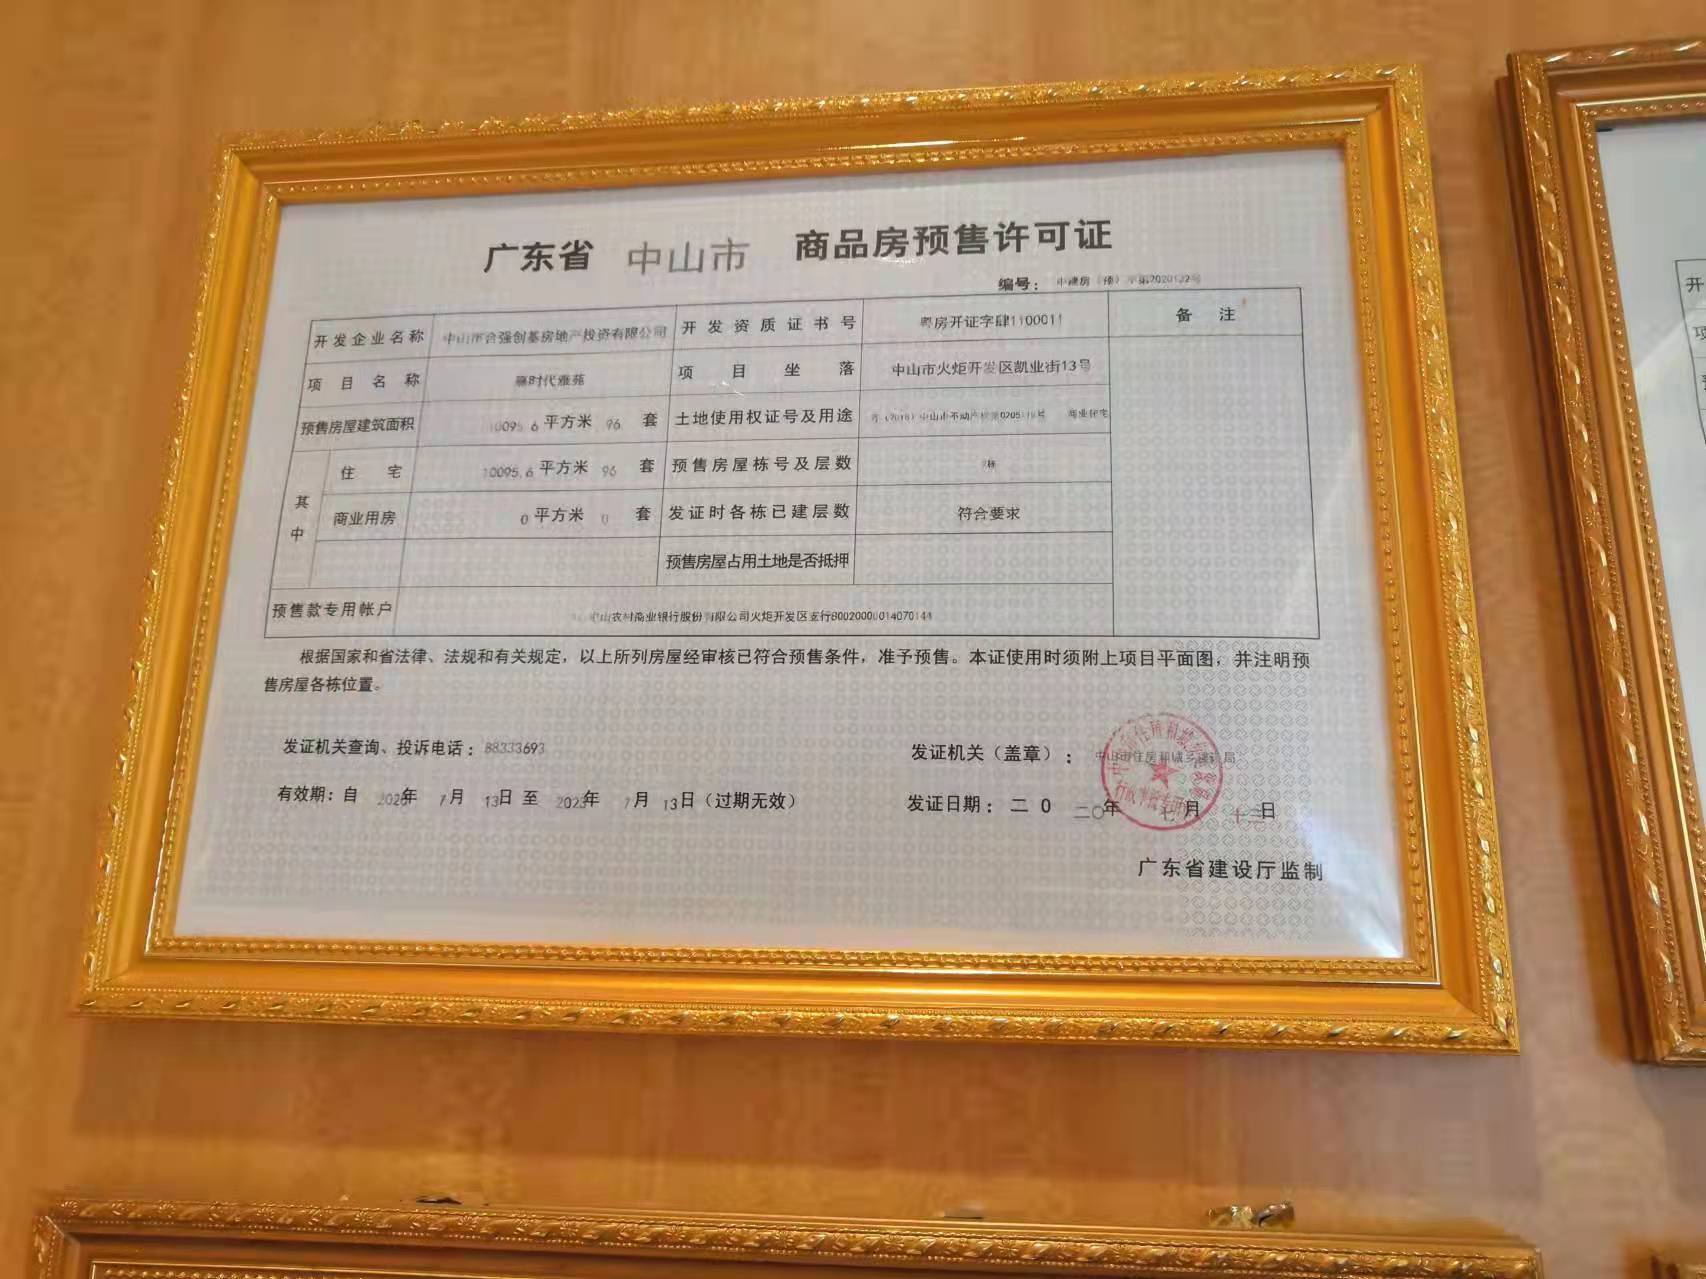 广东省 中山市 商品房预售许可证
编号：
开发企业名称 中山市合强创基房地产投资有限公司 开发资质证书号 粤房开证字肆1100011 备注
项目名称 时代雅苑 项目坐落 中山市火炬开发区凯业街13号
预售房屋建筑面积 10095.6 平方米 96 套 土地使用权证号及用途 商业住宅
其中
住宅 10095.6 平方米 96 套 预售房屋栋号及层数
商业用房 0 平方米 0 套 发证时各栋已建层数 符合要求
预售房屋占用土地是否抵押
预售款专用帐户 中山农村商业银行股份有限公司火炬开发区支行
根据国家和省法律、法规和有关规定，以上所列房屋经审核已符合预售条件，准予预售。本证使用时须附上项目平面图，并注明预
售房屋各栋位置。
发证机关查询、投诉电话：88333693 发证机关（盖章）：中山市住房和城乡建设局
有效期：自 2020年 7月 13日 至 2023年 7月 13日（过期无效） 发证日期：二0 二〇年 七月 十三日
广东省建设厅监制
开